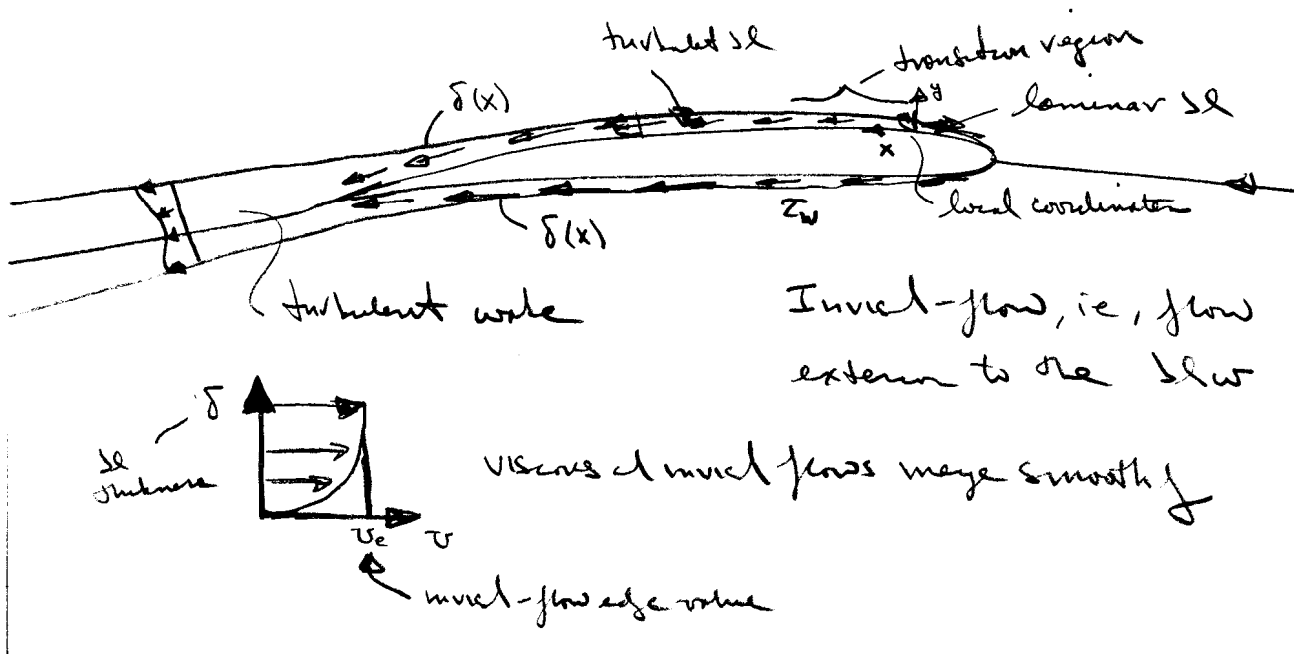 turbulent bl
transition region
δ(x)
y
laminar bl
x
τw
local coordinates
δ(x)
turbulent wake
Inviscid-flow, ie, flow
exterior to the bl & w
δ
bl
thickness
viscous & inviscid flows merge smoothly
ve
v
inviscid-flow edge value